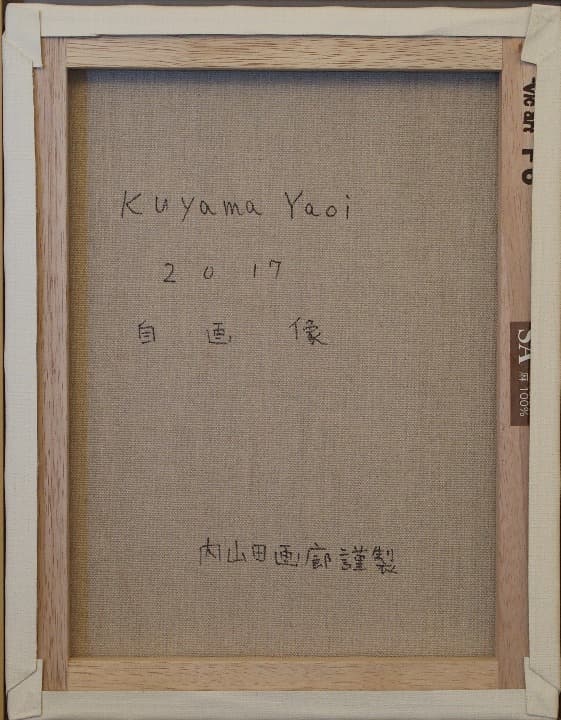 Kuyama Yaoi
2017
自画像
内山田画廊謹製
SA
麻 100%